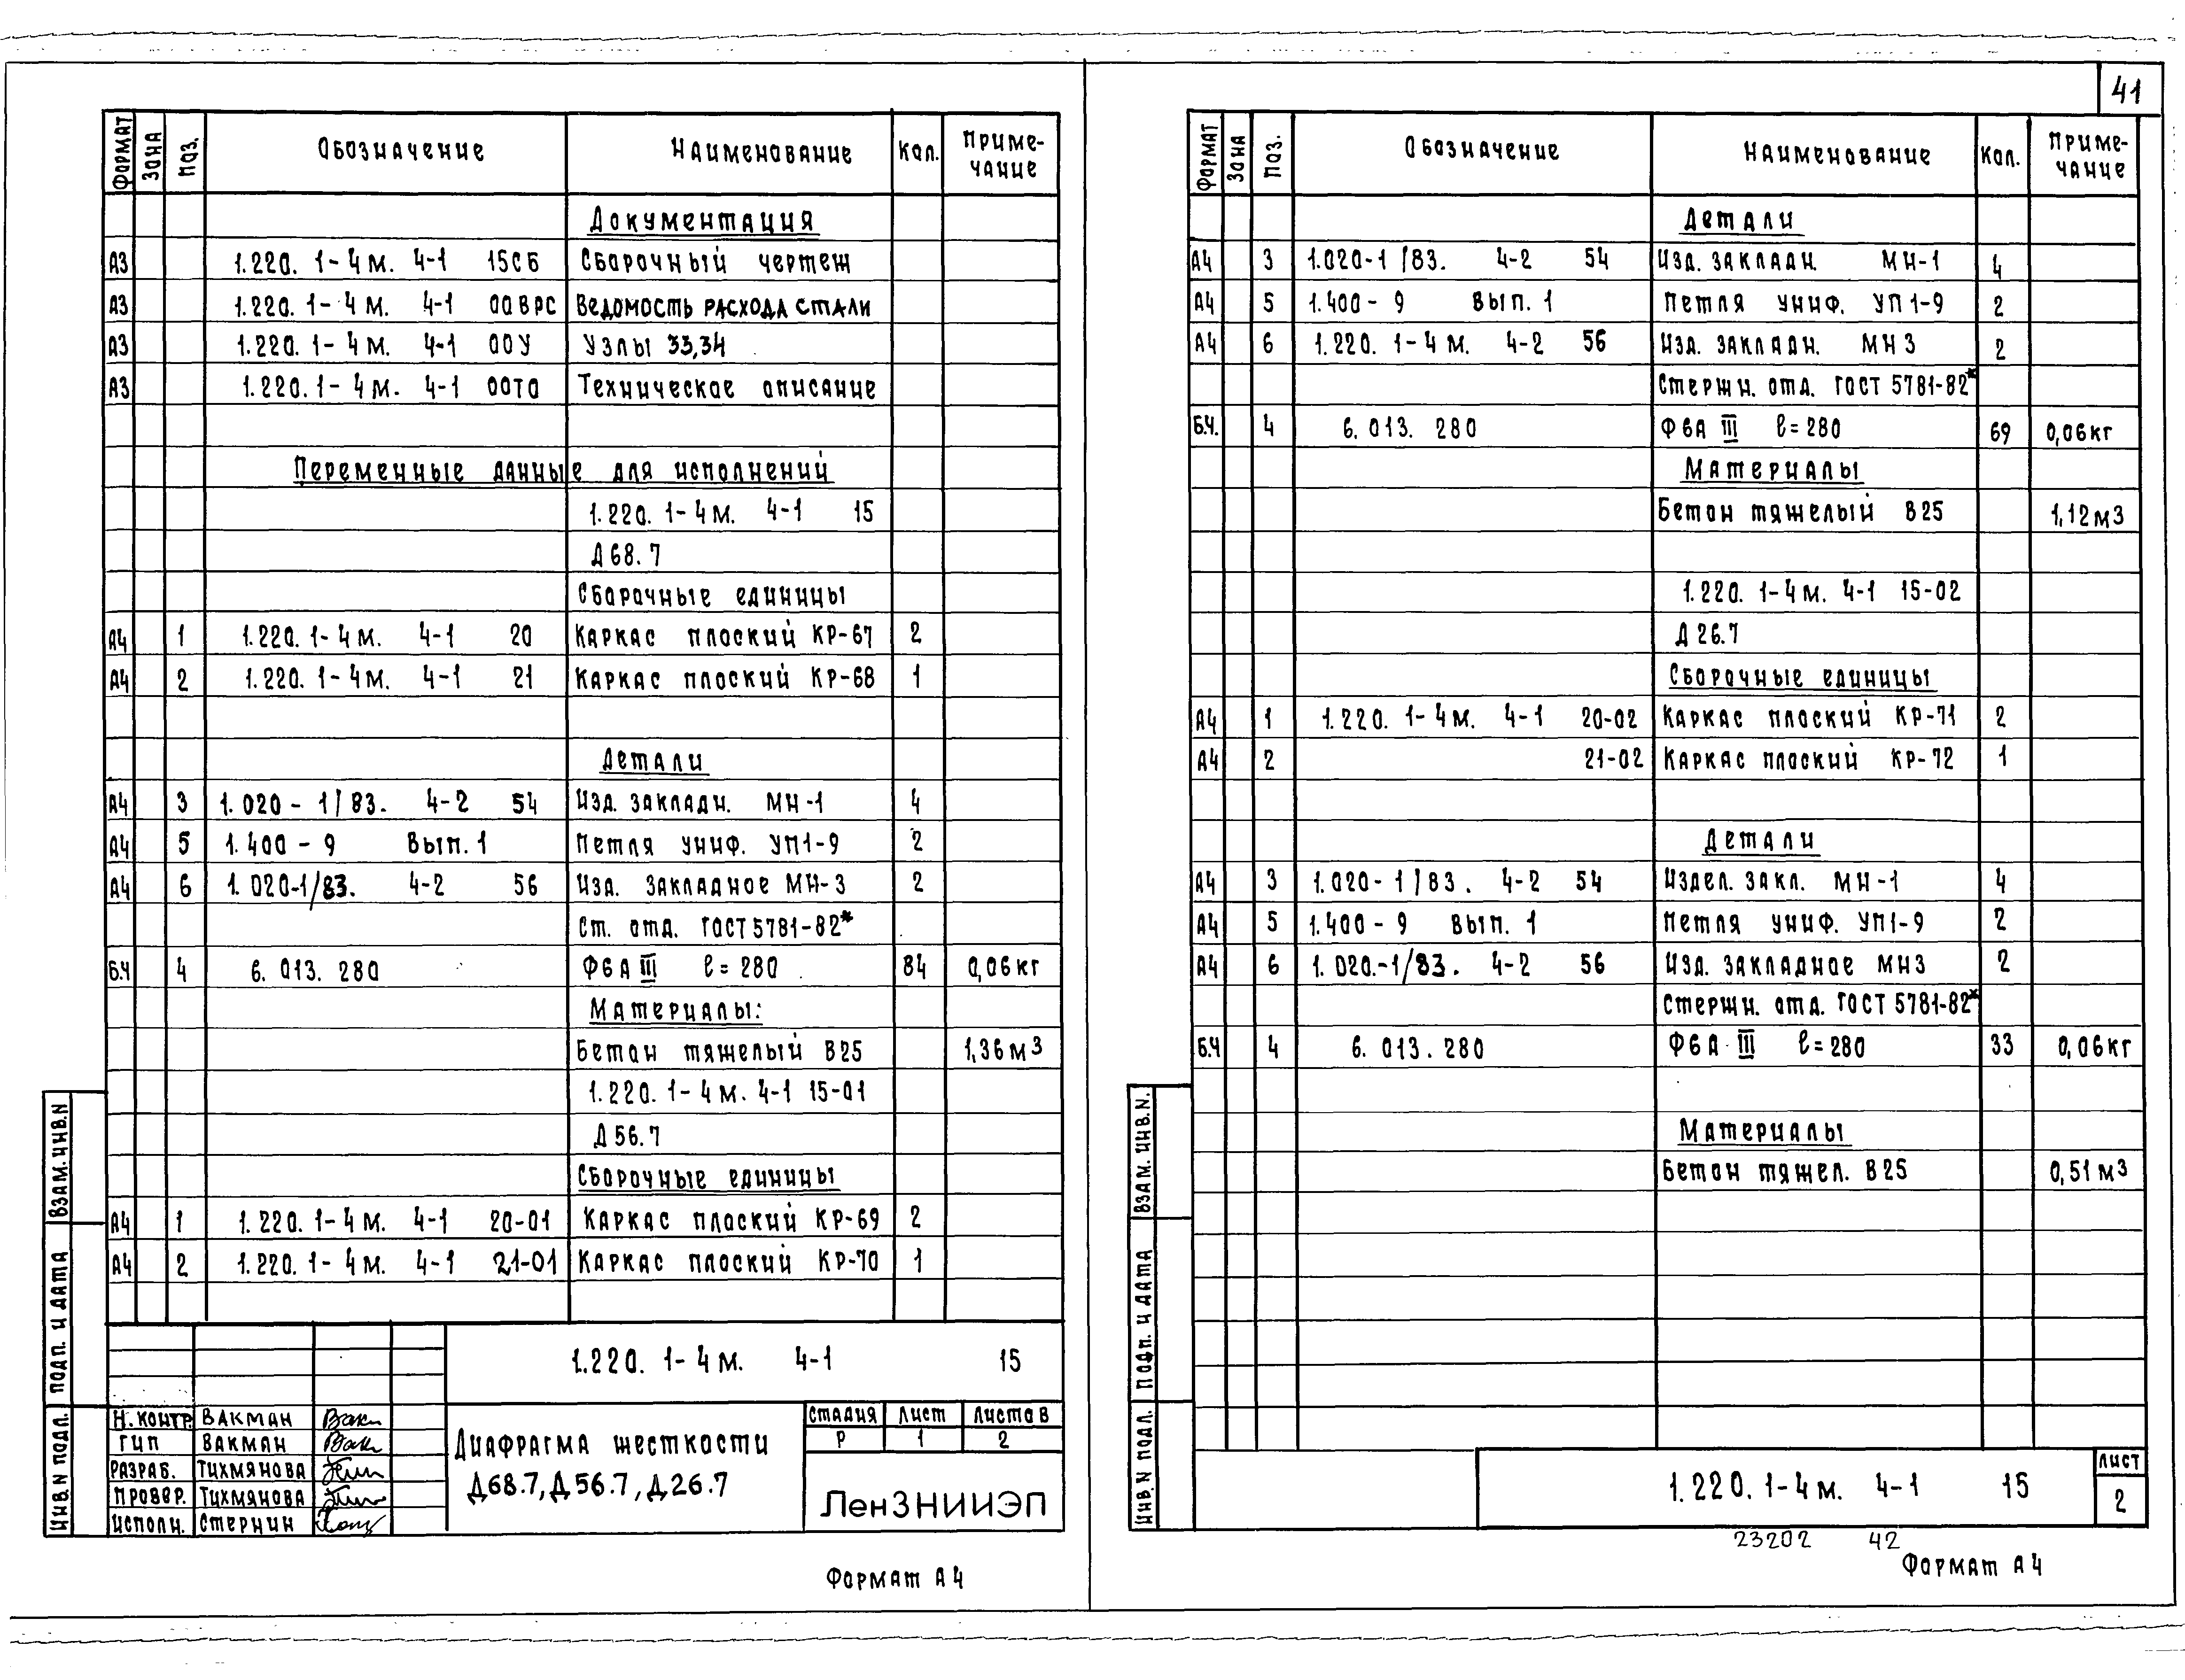 41
Формат Зона Поз. Обозначение Наименование Кол. Примечание
Документация
А3 1.220.1-4м. 4-1 15СБ Сборочный чертеж
А3 1.220.1-4м. 4-1 00ВРС Ведомость расхода стали
А3 1.220.1-4м. 4-1 00У Узлы 33,34
А3 1.220.1-4м. 4-1 00ТО Техническое описание
Переменные данные для исполнений
1.220.1-4м. 4-1 15
Д68.7
Сборочные единицы
А4 1 1.220.1-4м. 4-1 20 Каркас плоский КР-67 2
А4 2 1.220.1-4м. 4-1 21 Каркас плоский КР-68 1
Детали
А4 3 1.020-1/83. 4-2 54 Изд. закладн. МН-1 4
А4 5 1.400-9 Вып.1 Петля униф. УП1-9 2
А4 6 1.020-1/83. 4-2 56 Изд. закладное МН-3 2
Ст. отд. ГОСТ 5781-82*
Б.Ч 4 6.013.280 Ф6А III ℓ=280 84 0,06кг
Материалы:
Бетон тяжелый В25 1,36м3
1.220.1-4м. 4-1 15-01
Д56.7
Сборочные единицы
А4 1 1.220.1-4м. 4-1 20-01 Каркас плоский КР-69 2
А4 2 1.220.1-4м. 4-1 21-01 Каркас плоский КР-70 1
1.220.1-4м. 4-1 15
Н.контр. Вакман
ГИП Вакман
Разраб. Тихмянова
Провер. Тихмянова
Исполн. Стернин
Диафрагма жесткости
Д68.7, Д56.7, Д26.7
Стадия Лист Листов
Р 1 2
ЛенЗНИИЭП
Взам. инв.N
Подп. и дата
Инв.N подл.
Формат А4
Формат Зона Поз. Обозначение Наименование Кол. Примечание
Детали
А4 3 1.020-1/83. 4-2 54 Изд. закладн. МН-1 4
А4 5 1.400-9 Вып.1 Петля униф. УП1-9 2
А4 6 1.220.1-4м. 4-2 56 Изд. закладн. МН3 2
Стержн. отд. ГОСТ 5781-82*
Б.Ч. 4 6.013.280 Ф6А III ℓ=280 69 0,06кг
Материалы
Бетон тяжелый В25 1,12м3
1.220.1-4м. 4-1 15-02
Д26.7
Сборочные единицы
А4 1 1.220.1-4м. 4-1 20-02 Каркас плоский КР-71 2
А4 2 21-02 Каркас плоский КР-72 1
Детали
А4 3 1.020-1/83. 4-2 54 Издел. закл. МН-1 4
А4 5 1.400-9 Вып.1 Петля униф. УП1-9 2
А4 6 1.020.-1/83. 4-2 56 Изд. закладное МН3 2
Стержн. отд. ГОСТ 5781-82*
Б.Ч 4 6.013.280 Ф6А III ℓ=280 33 0,06кг
Материалы
Бетон тяжел. В25 0,51м3
Взам. инв.N.
Подп. и дата
Инв.N подл.
1.220.1-4м. 4-1 15
Лист
2
23202 42
Формат А4